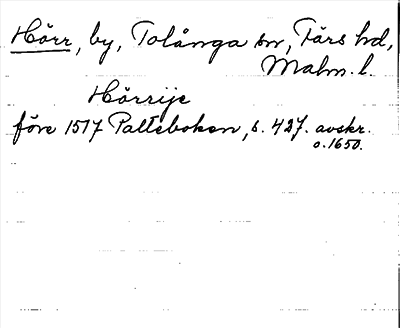 Hörr, by, Tolånga sn, Färs hd,
Malm. l.
Hörrije
före 1517 Palteboken, s. 427. avskr.
o. 1650.